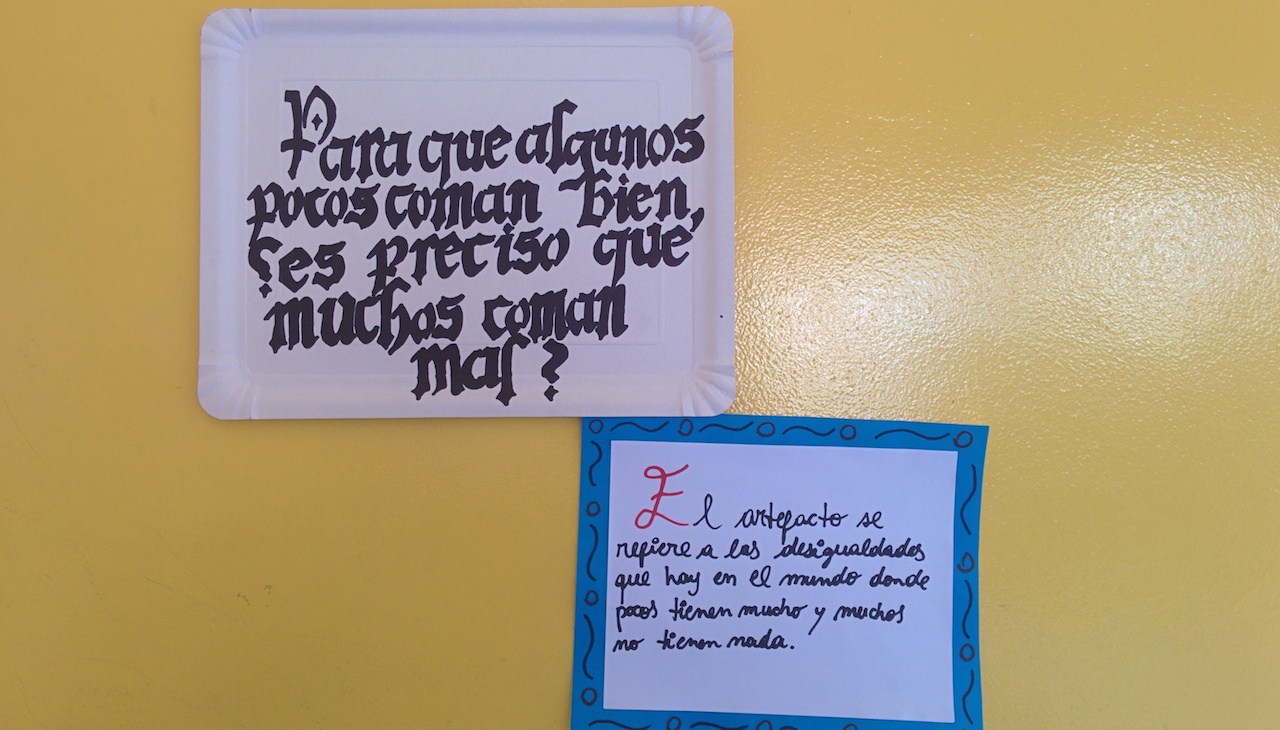 Para que algunos
pocos coman bien,
¿es preciso que
muchos coman
mal?
El artefacto se
refiere a las desigualdades
que hay en el mundo donde
pocos tienen mucho y muchos
no tienen nada.